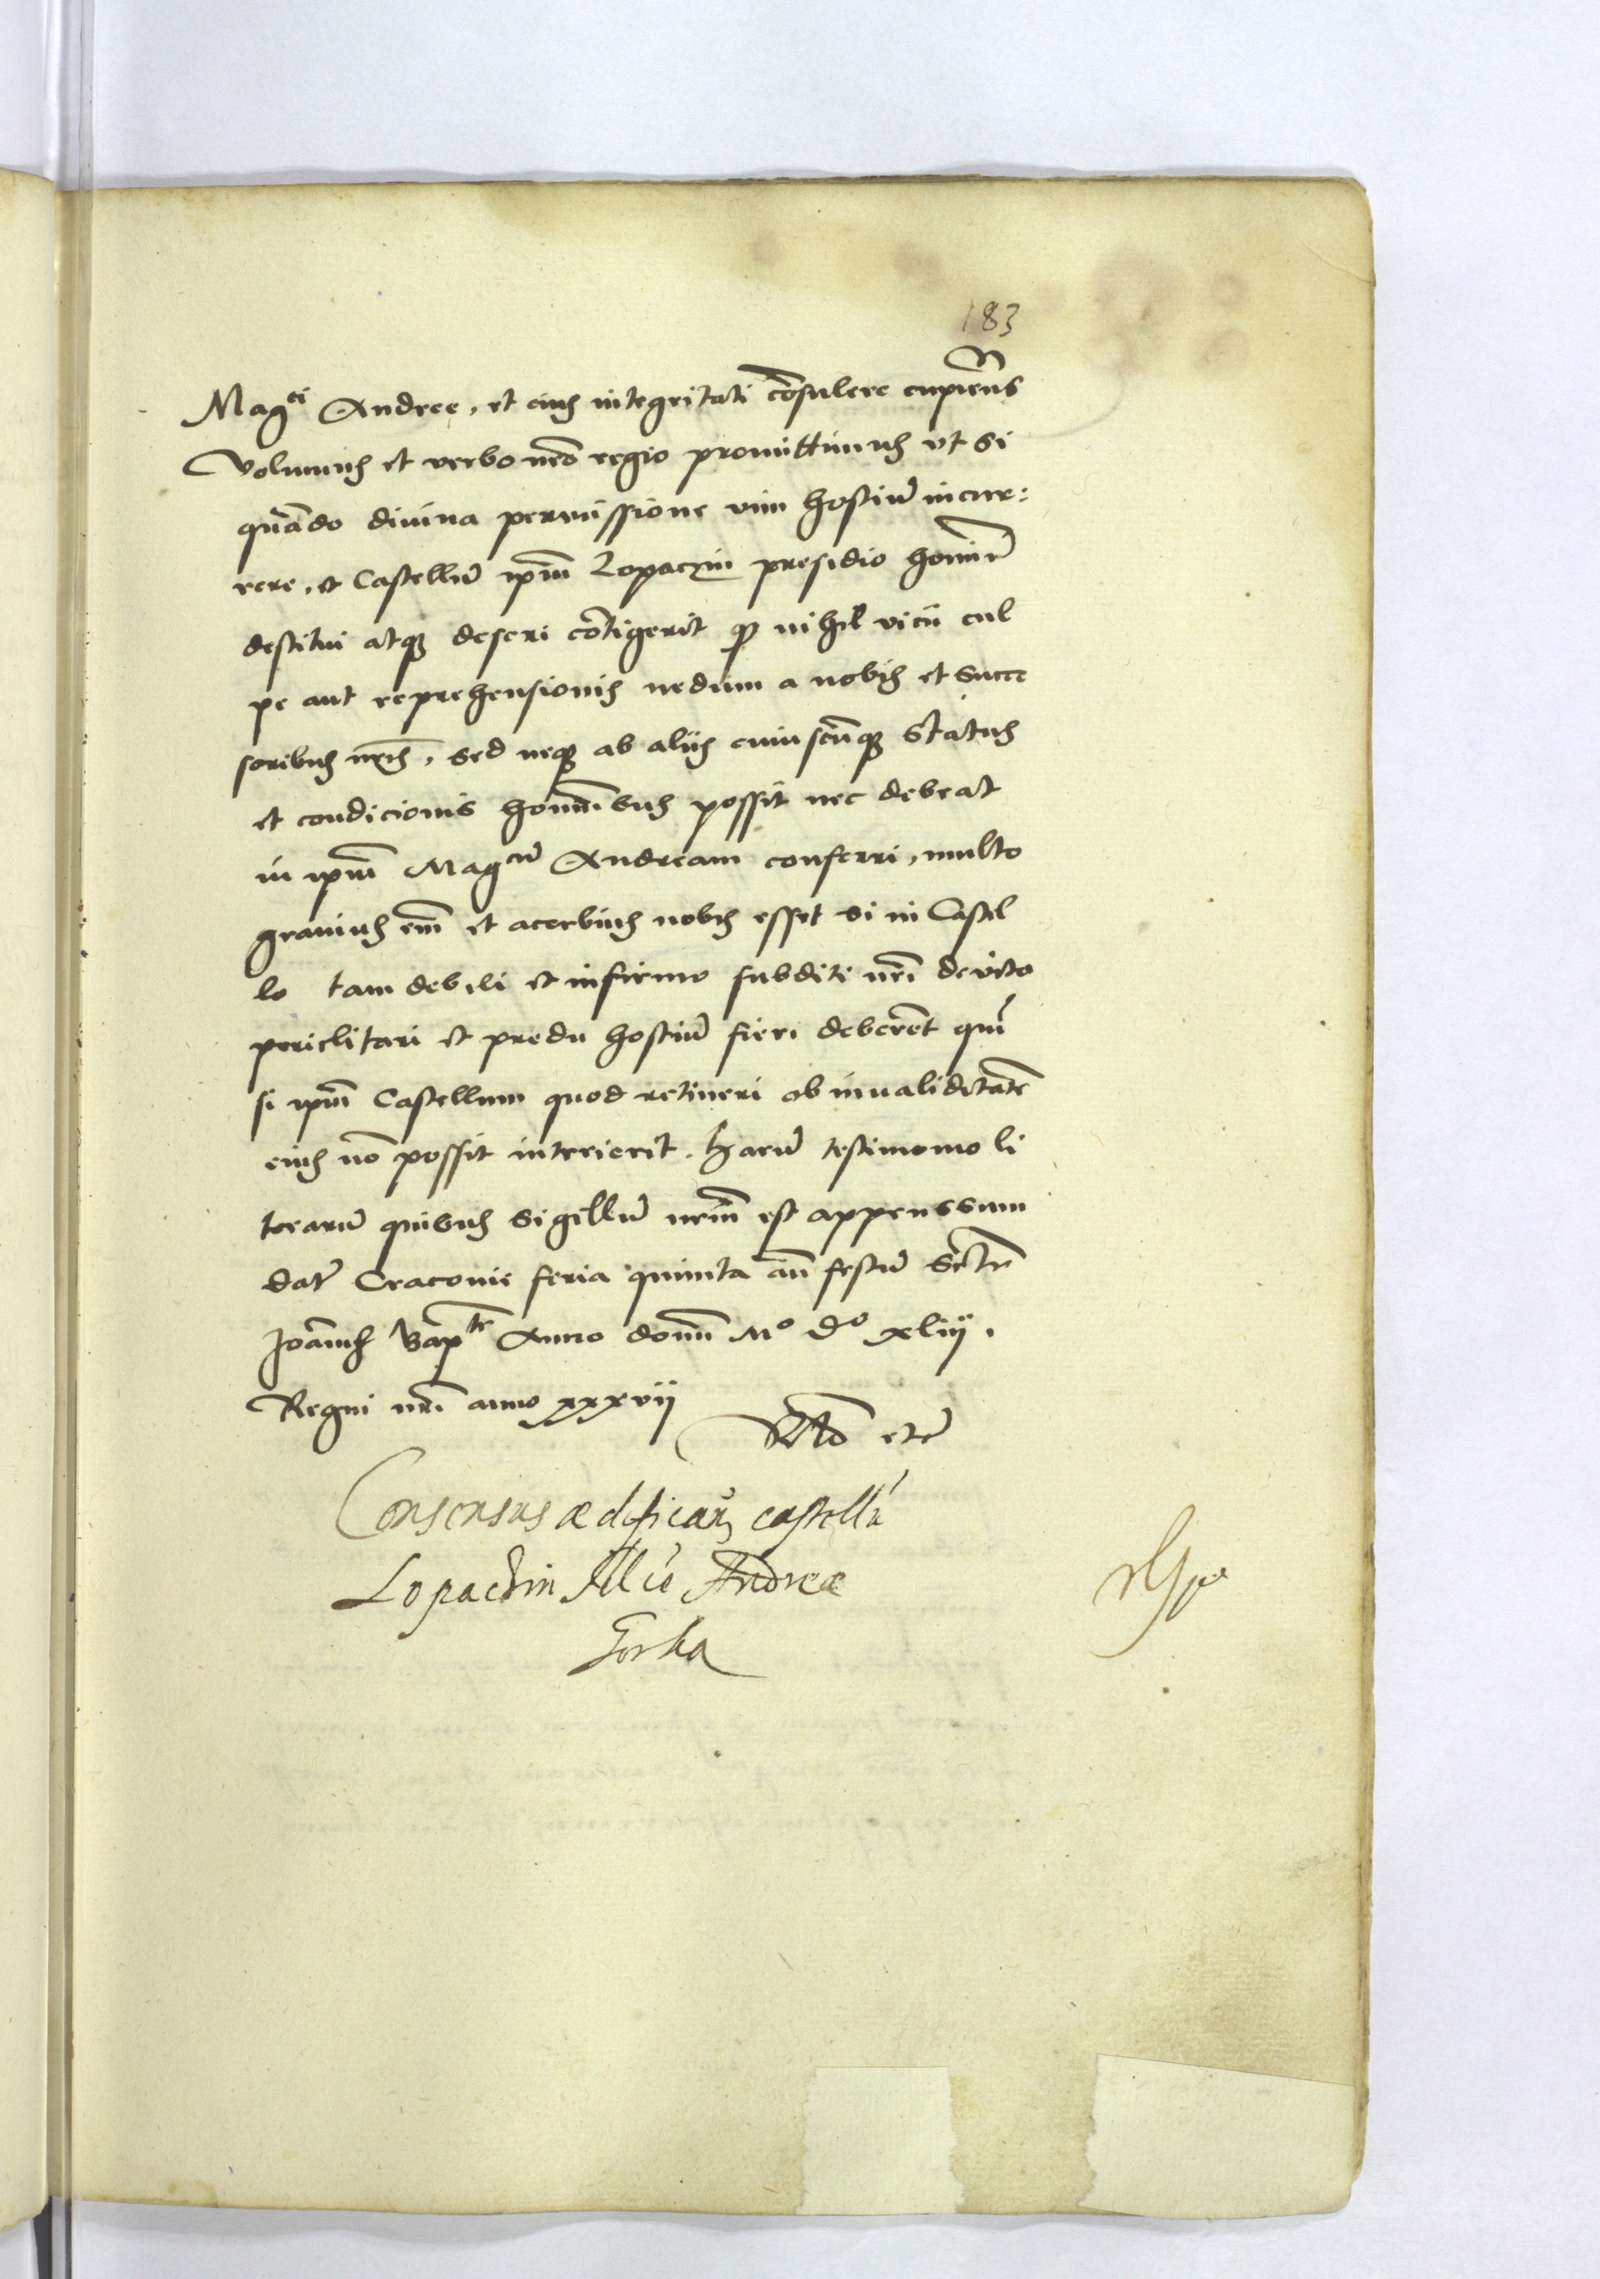 183
Mag^ci Andree, et eius integritati cōsulere cupiens
Volumus et verbo nr̄o regio promittimus vt si
quādo diuina permissione vim hostiū incur:
rere, et Castellū ip̄m Lopaczin presidio homin̄
destitui atq3 deseri cōtigerit q nihil vicii cul
pe aut reprehensionis nedum a nobis et succe
soribus nr̄is, sed neq3 ab aliis cuiuscūq3 status
et condicionis hominibus possit nec debeat
in ip̄m Mag^cū Andream conferri, multo
grauius em̄ et acerbius nobis esset si in Castel
lo tam debili et infirmo subditi nr̄i de vita
periclitari et preda hostiū fieri deberēt quā
si ip̄m Castellum quod retineri ob inualiditatē
eius nō possit interierit. Harū testimonio li
terarū quibus sigillū nr̄m est appenssum
dat̄ Cracouie feria quinta an̄ festū Sctī
Joānis Bap^te Anno domī M^o d^o xliij.
Regni nr̄i anno xxxvij
etc̄
Consensus ædifican̄ castellū
Lopaczin Andreæ
Gorka